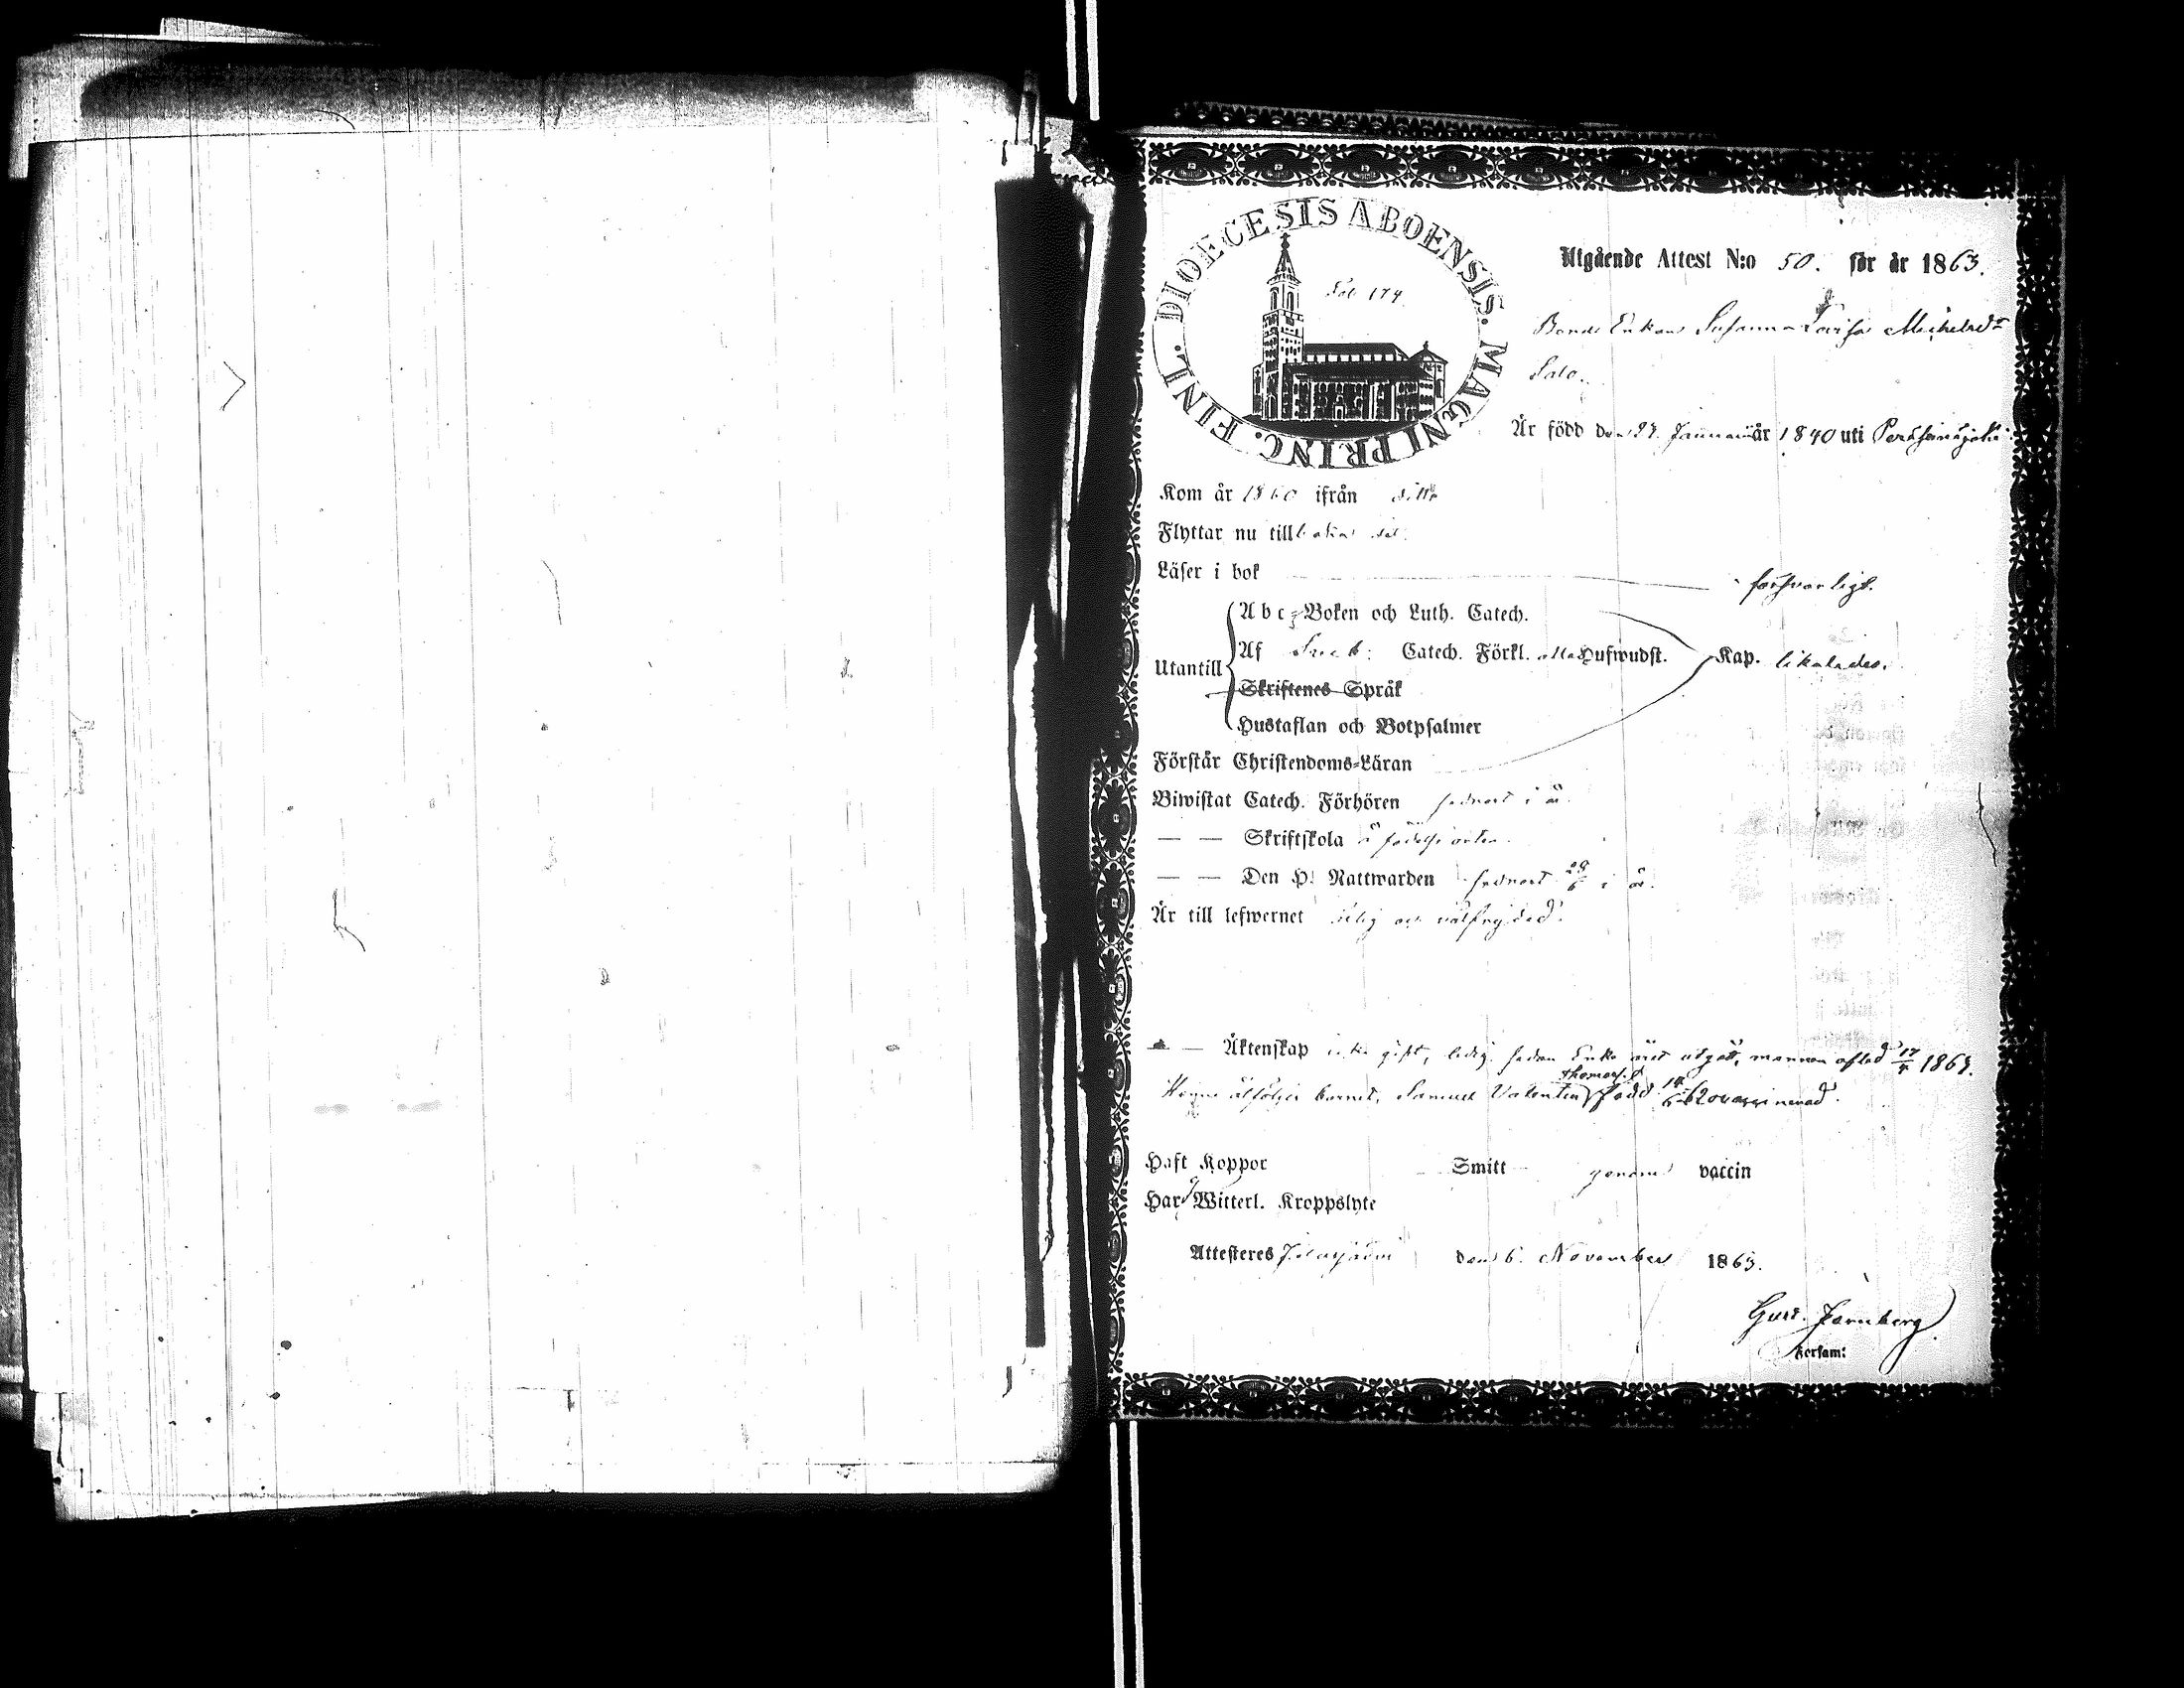 DIOECESIS ABOENSIS. MAGNI PRINC. FINL.
Fol. 174
Utgående Attest N:o 50. för år 1863.
Bonde Enkan Susanna Lovisa Michelsdr
Salo.
Är född den 27. Januari år 1840 uti
Kom år 1860 ifrån ditto
Flyttar nu tillbaka
Läser i bok försvarligt.
Utantill
Abc-Boken och Luth. Catech.
Af Sveb: Catech. Förkl. alla Hufwudst. Kap. likaledes.
Skriftenes Språk
Hustaflan och Botpsalmer
Förstår Christendoms-Läran
Biwistat Catech. Förhören sednast i år.
— — Skriftskola å födelseorten.
— — Den H. Nattwarden sednast 28/6 i år.
Är till lefwernet och välfrejdad.
— — Äktenskap icke gift, ledig sedan Enke året utgått, mannen afled 17/4 1863.
Henne åtföljer barnet, Samuel Valentin Thomass. född 14/6 62 ovaccinerad.
Haft Koppor Smitt genom vaccin
Har Witterl. Kroppslyte
Attesteres den 6. November 1863.
Gust. Jarnberg
Församl: